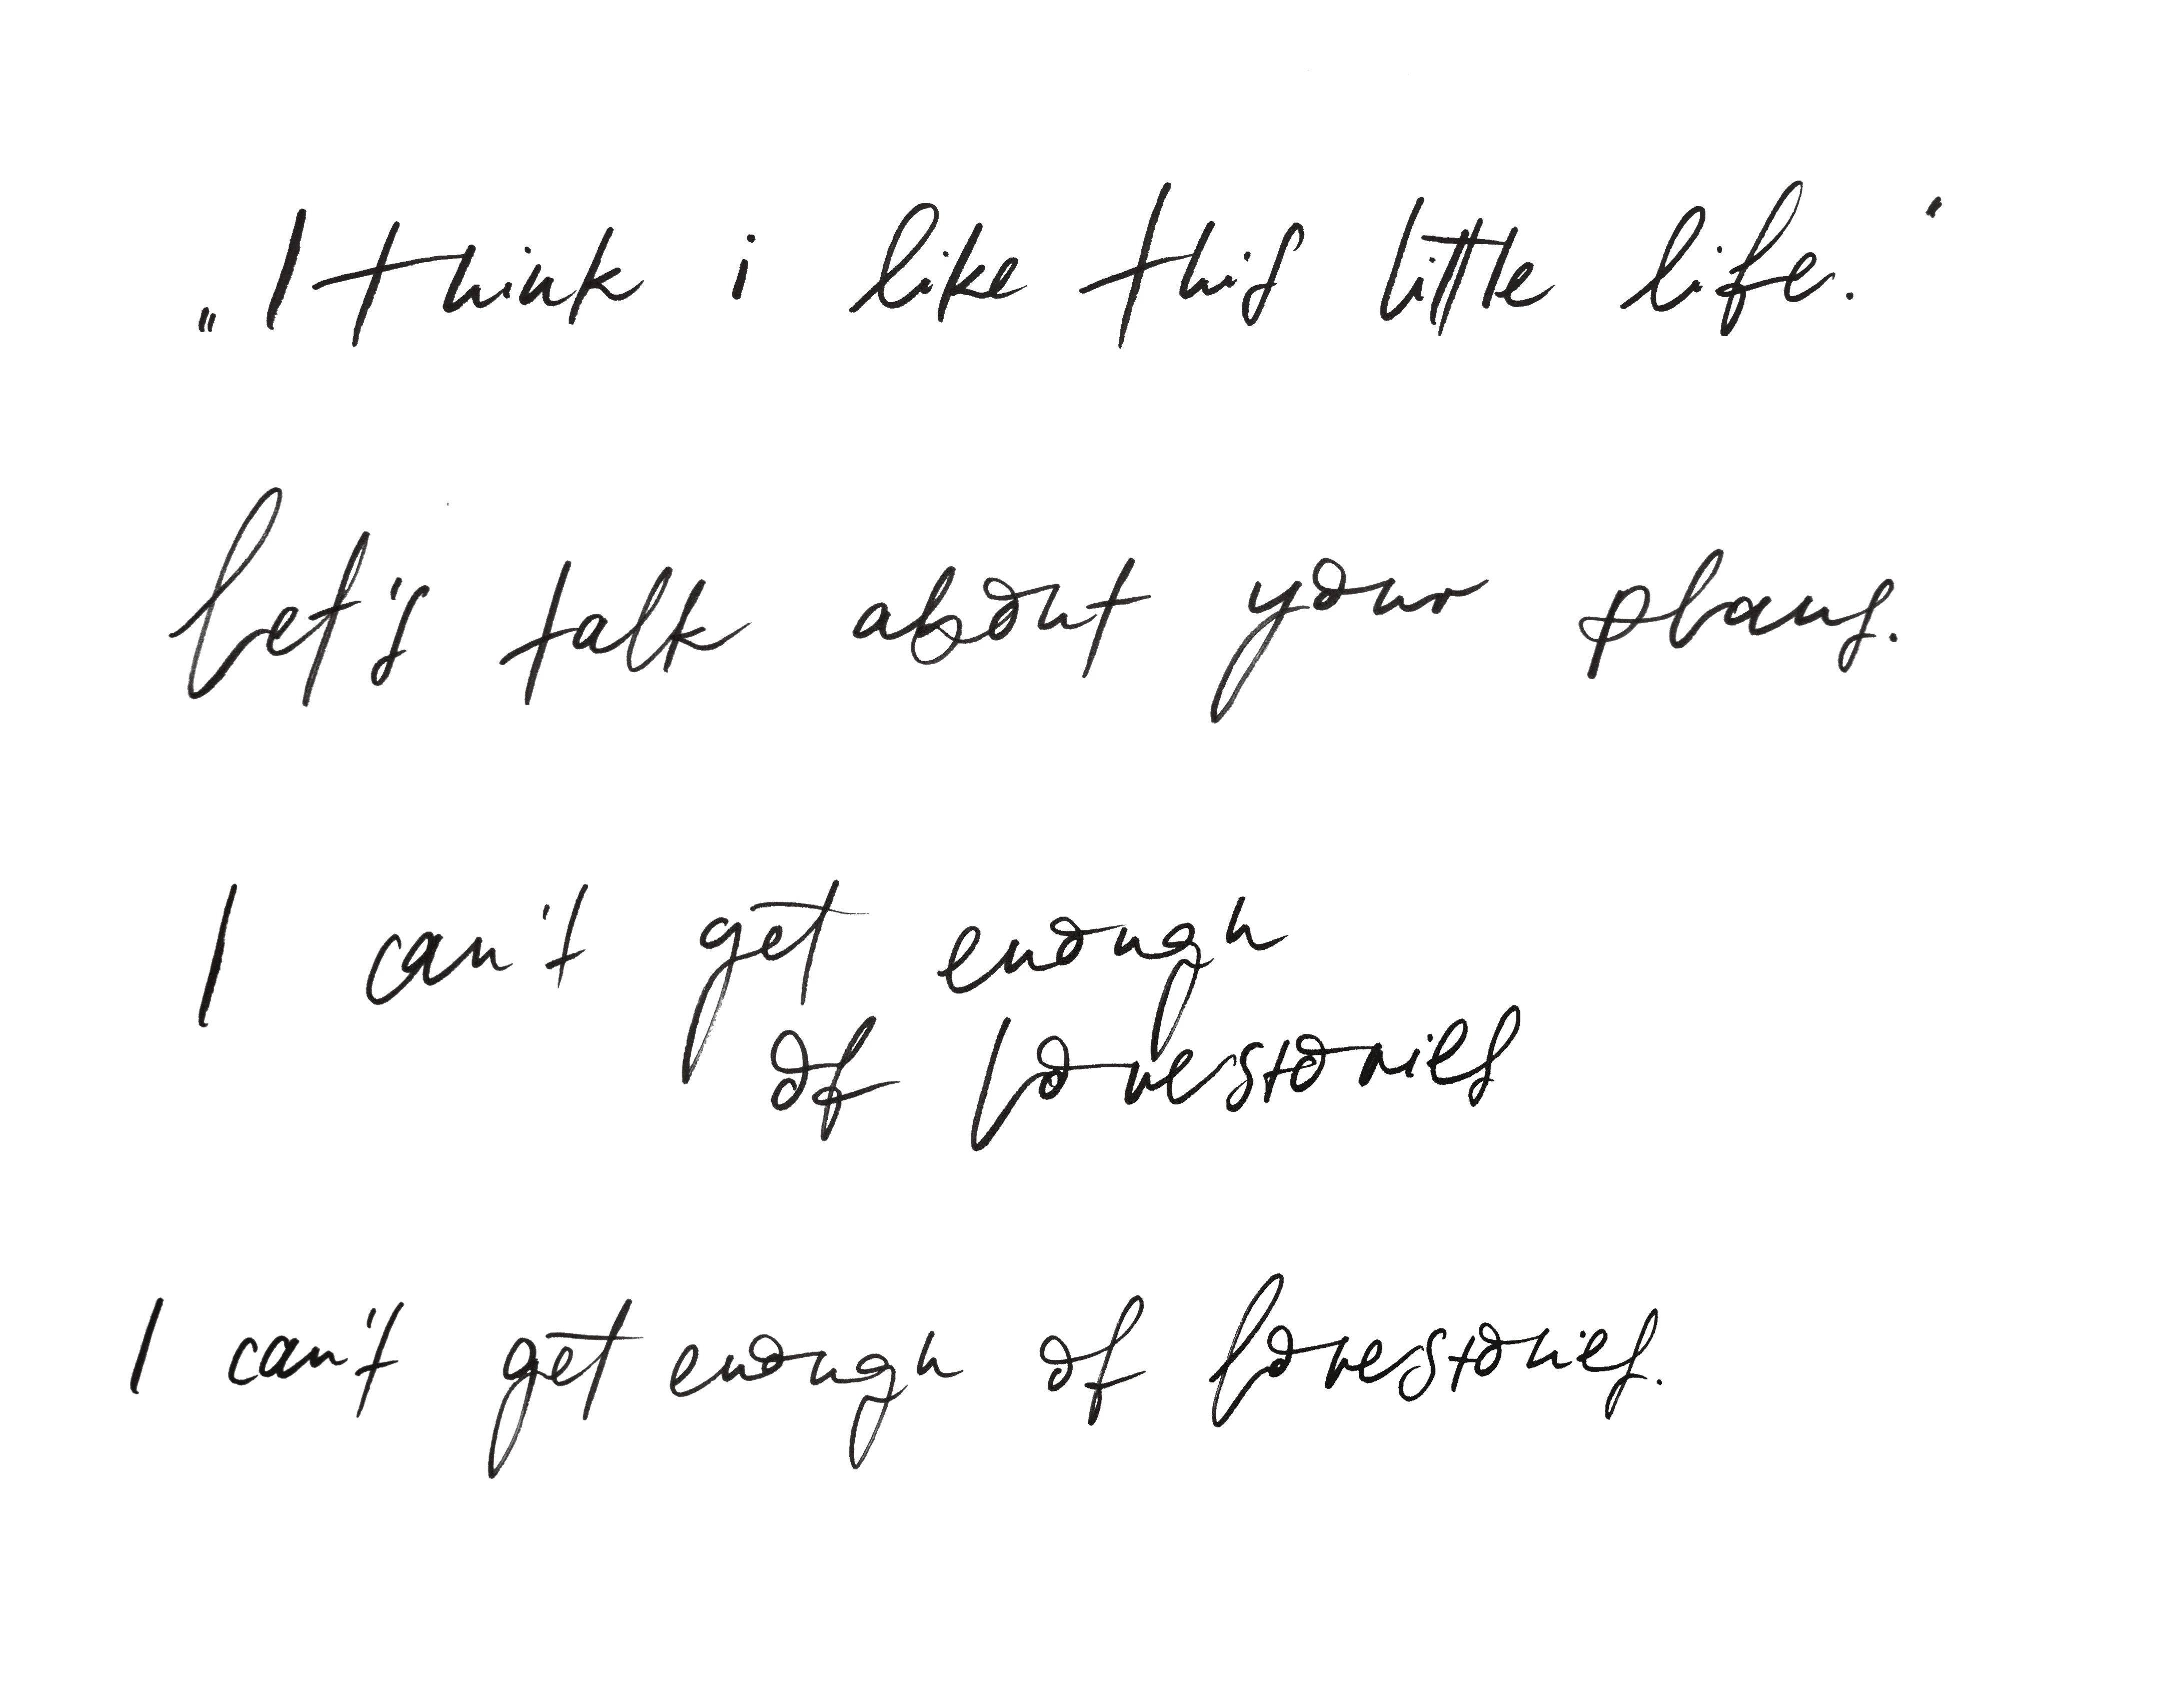 „I think i like this little life.“
Let's talk about your plans.
I can't get enough
of lovestories
I can't get enough of lovestories.